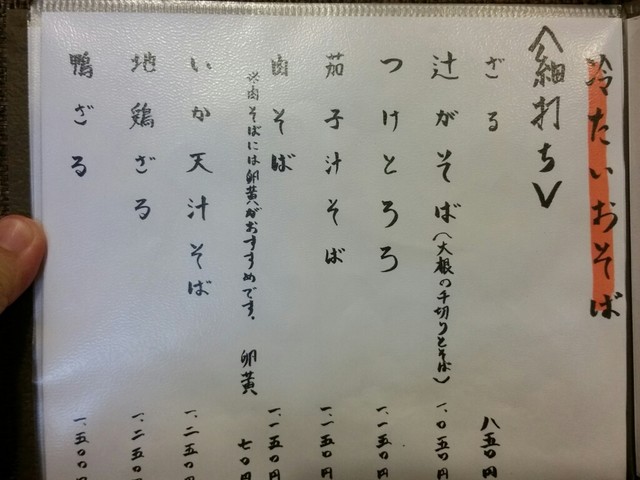 冷たいおそば
<細打ち>
ざる 八五〇円
辻がそば(大根の千切りとそば) 一、〇五〇円
つけとろろ 一、一五〇円
茄子汁そば 一、一五〇円
肉そば 一、一五〇円
※肉そばには卵黄がおすすめです。 卵黄 七〇円
いか天汁そば 一、二五〇円
地鶏ざる 一、二五〇円
鴨ざる 一、五〇〇円